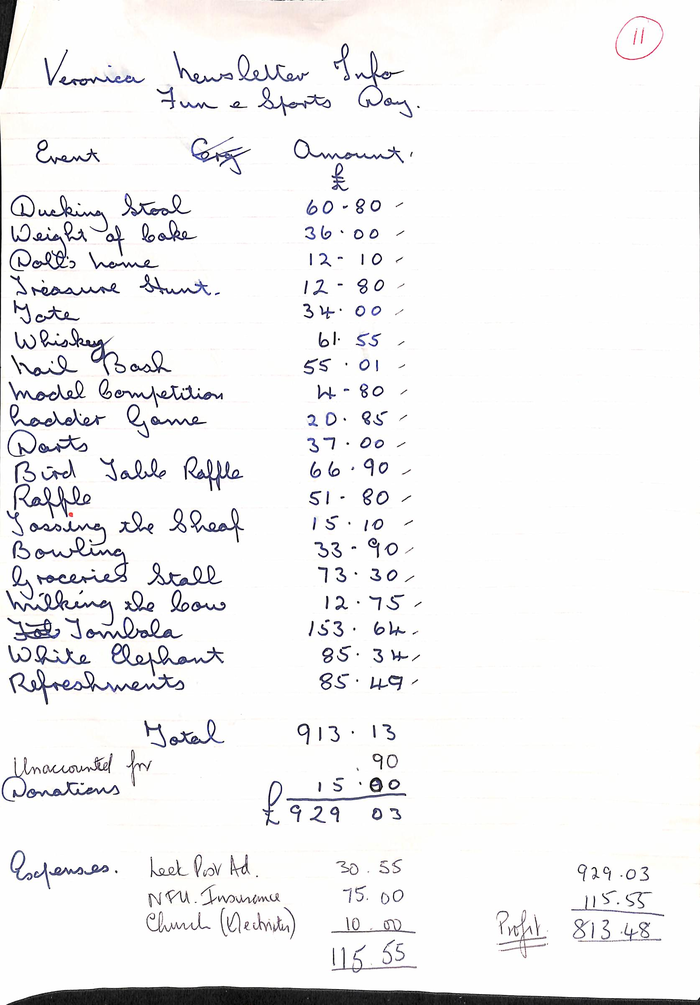 11
Veronica Newsletter Info
Fun & Sports Day.
Event Amount.
£
Ducking Stool 60-80
Weight of Cake 36.00
Doll's name 12-10
Treasure Hunt. 12-80
Gate 34.00
Whiskey 61.55
Nail Bash 55.01
Model Competition 4-80
Ladder Game 20.85
Darts 37.00
Bird Table Raffle 66.90
Raffle 51-80
Tossing the Sheaf 15.10
Bowling 33-90
Groceries Stall 73.30
Milking the Cow 12.75
Tombola 153.64
White Elephant 85.34
Refreshments 85.49
Total 913.13
Unaccounted for .90
Donations 15.00
£929 03
Expenses. Leek Post Ad. 30.55
NFU. Insurance 75.00
Church (Electricity) 10.00
115.55
929.03
115.55
Profit 813.48